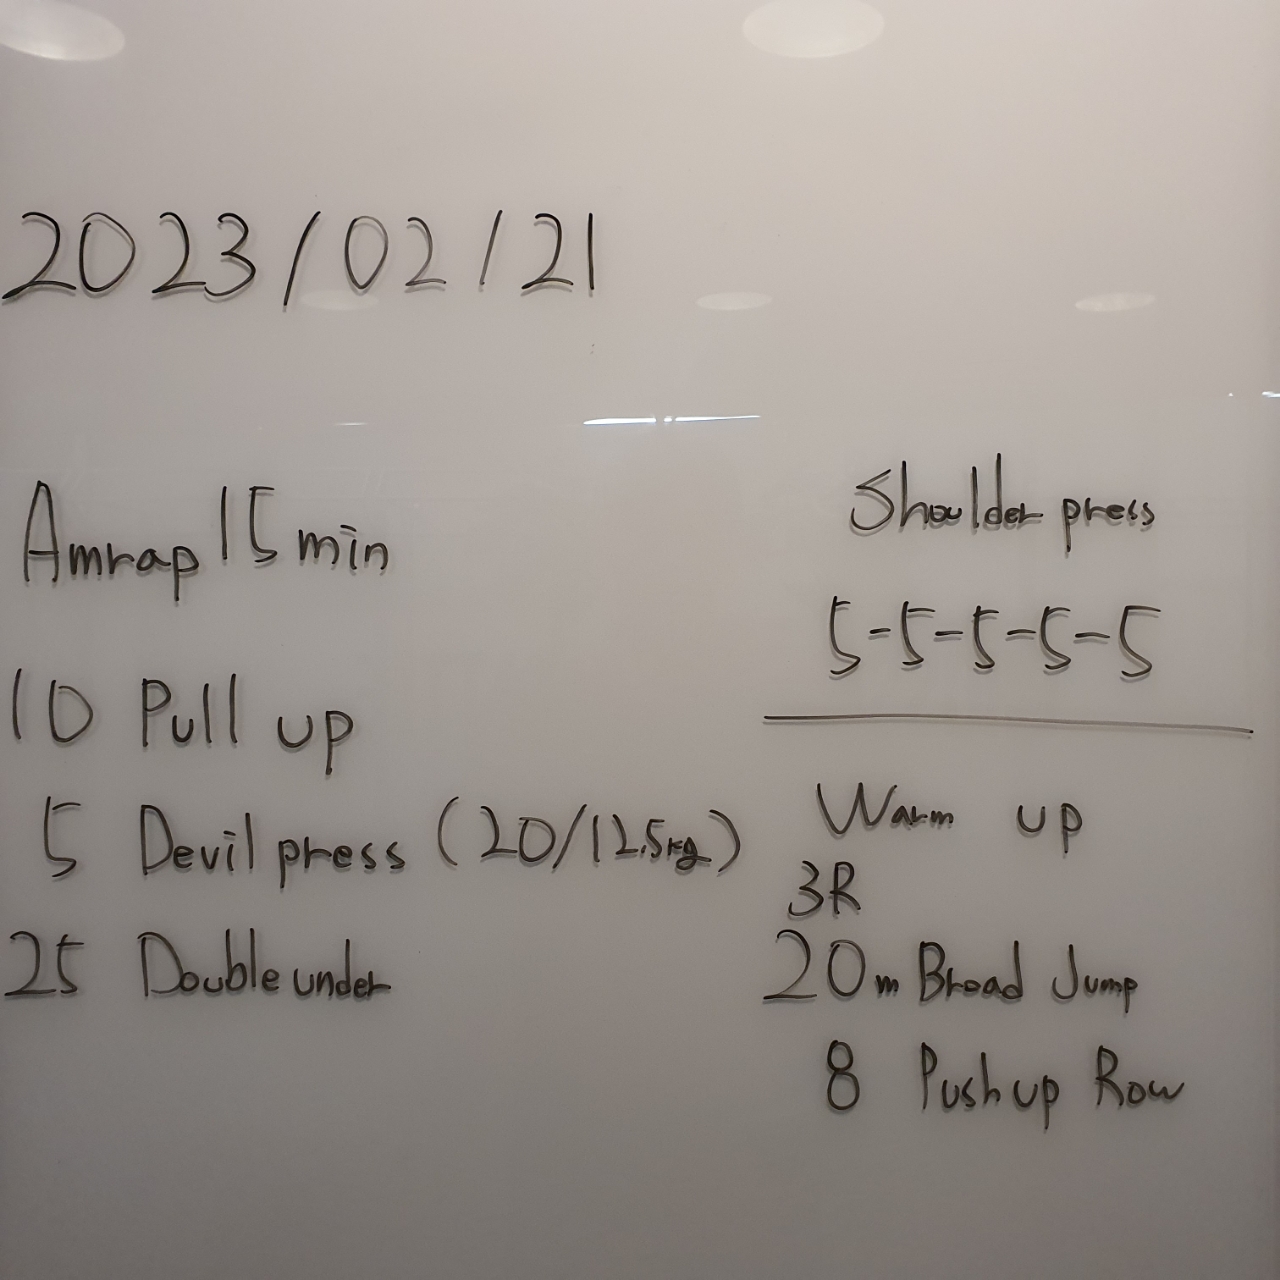 2023/02/21
Amrap 15 min
10 Pull up
5 Devil press (20/12.5kg)
25 Double under
Shoulder press
5-5-5-5-5
Warm up
3R
20m Broad Jump
8 Push up Row